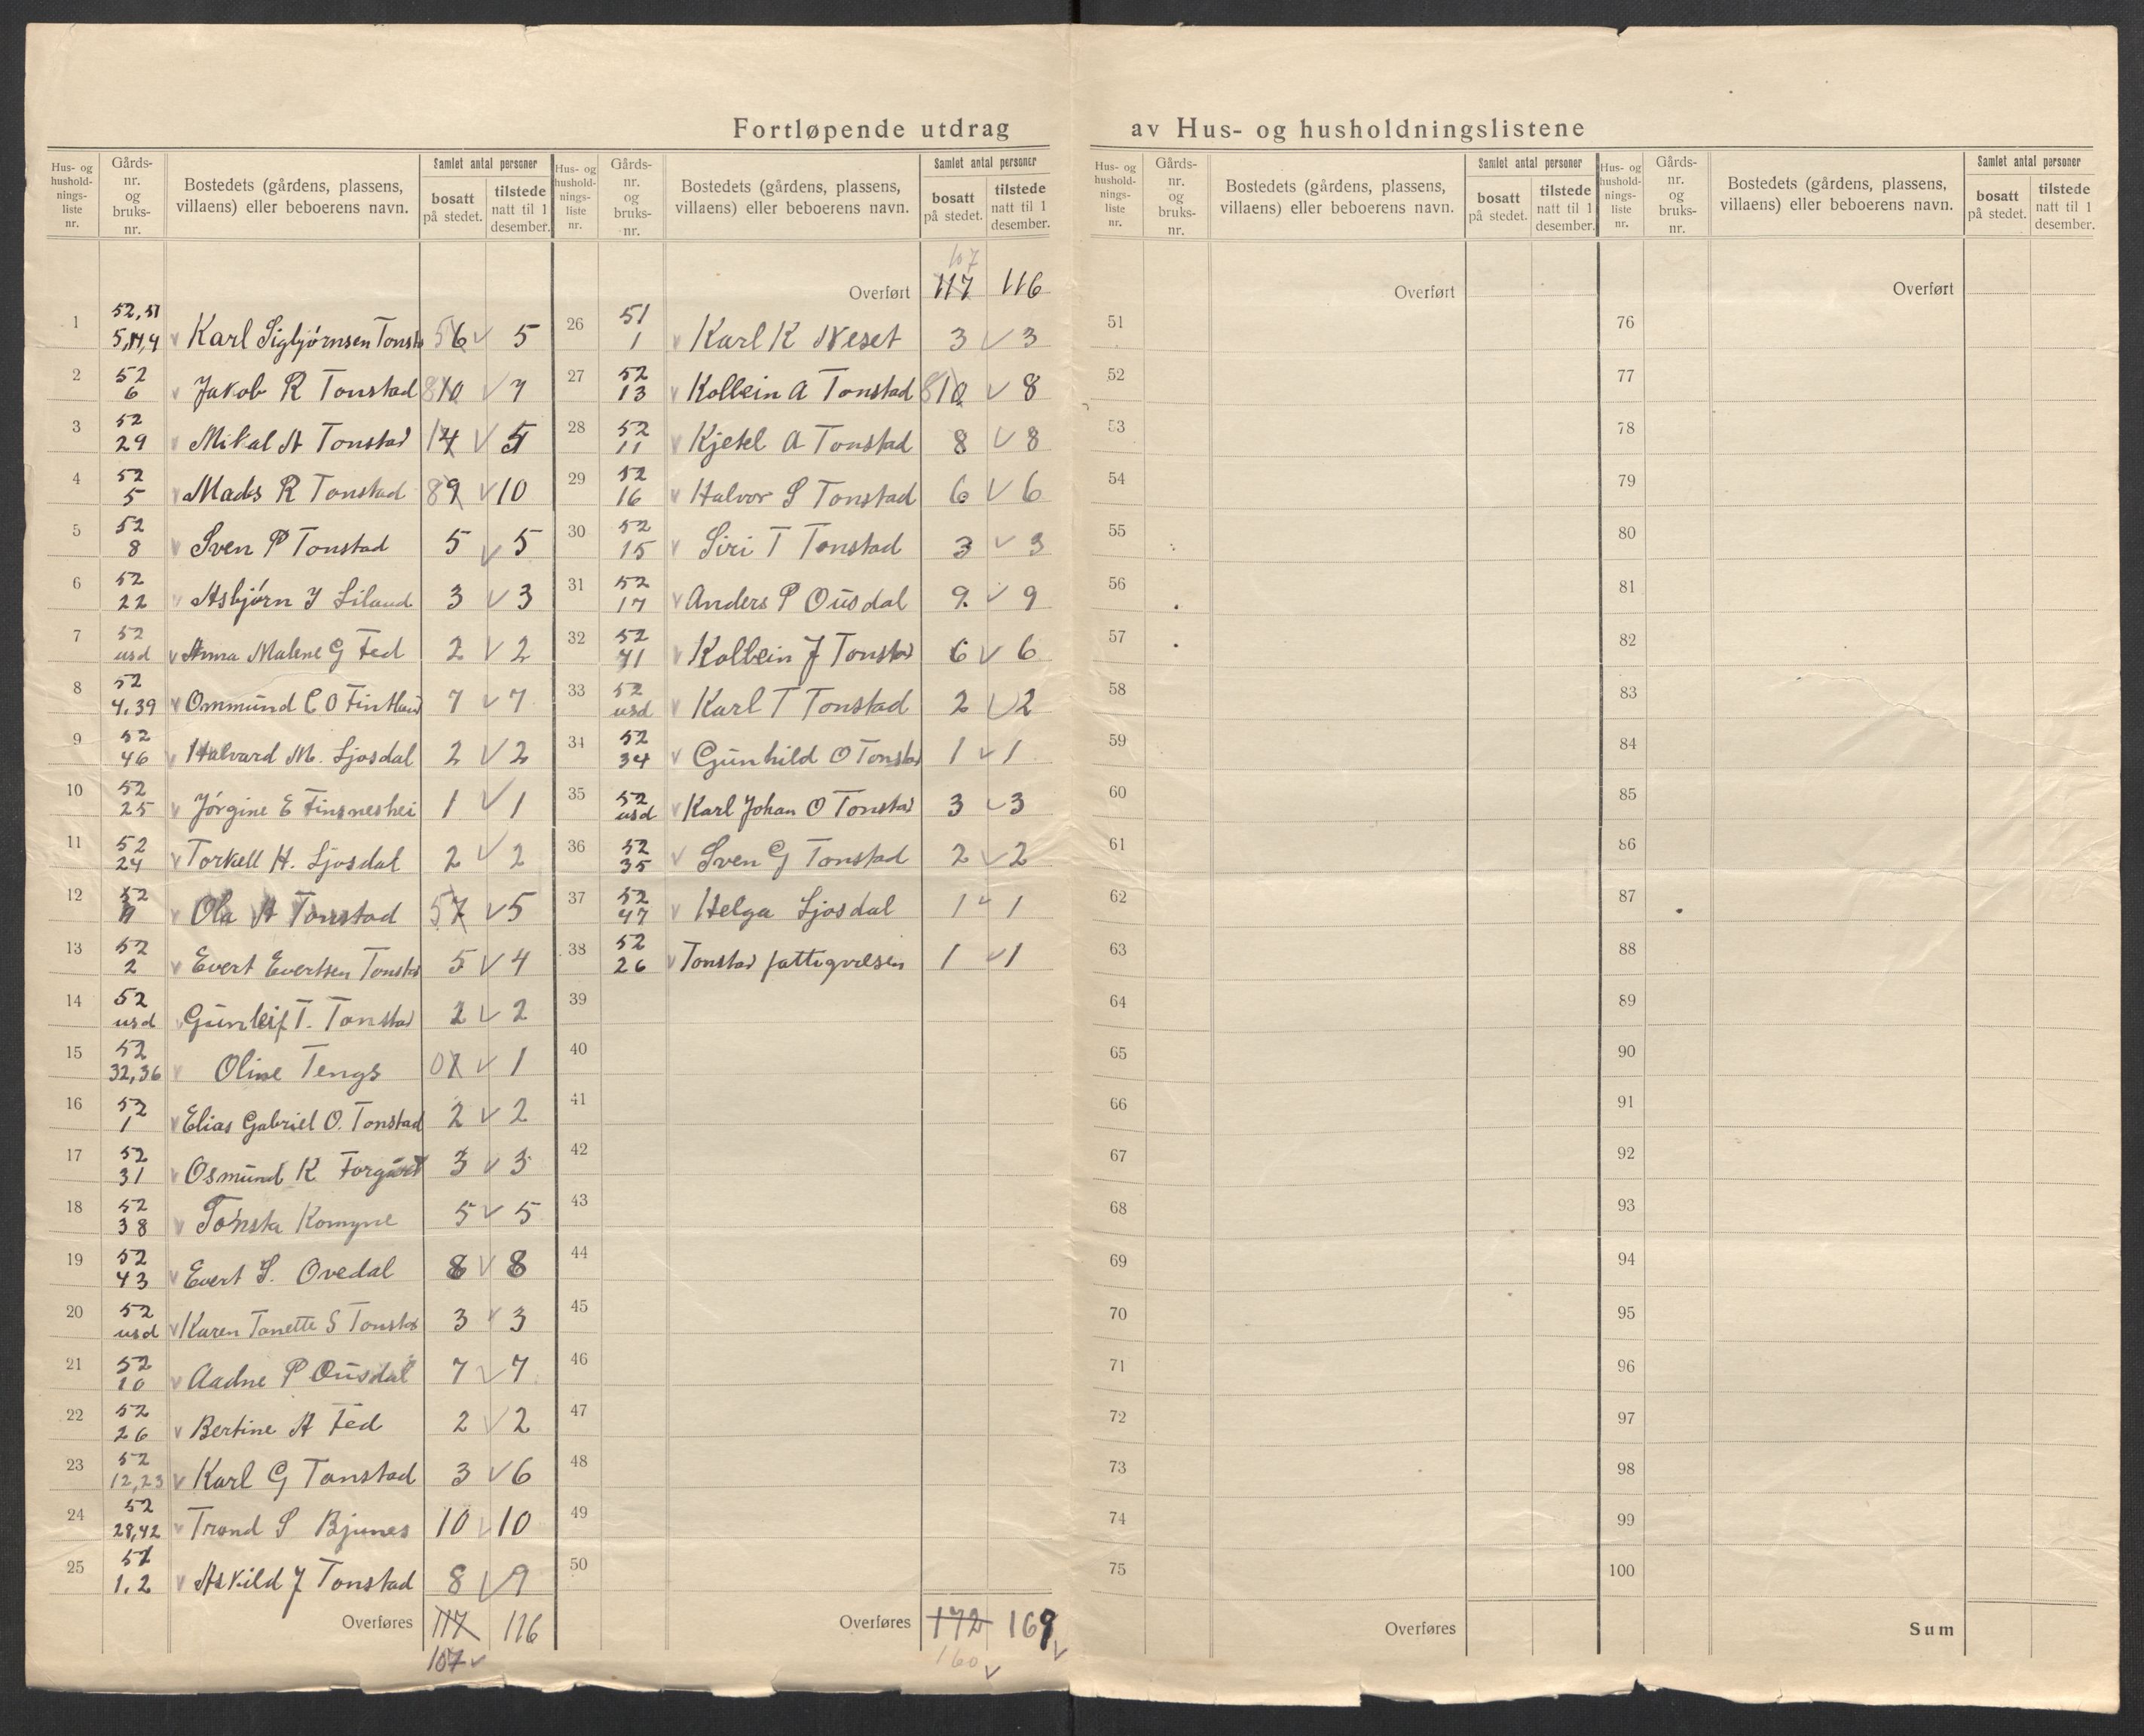 Fortløpende utdrag av Hus- og husholdningslistene
Hus- og hushold-nings-liste nr. Gårds-nr. og bruks-nr. Bostedets (gårdens, plassens, villaens) eller beboerens navn. Samlet antal personer bosatt på stedet. tilstede natt til 1 desember.
Hus- og hushold-nings-liste nr. Gårds-nr. og bruks-nr. Bostedets (gårdens, plassens, villaens) eller beboerens navn. Samlet antal personer bosatt på stedet. tilstede natt til 1 desember.
Hus- og hushold-nings-liste nr. Gårds-nr. og bruks-nr. Bostedets (gårdens, plassens, villaens) eller beboerens navn. Samlet antal personer bosatt på stedet. tilstede natt til 1 desember.
Hus- og hushold-nings-liste nr. Gårds-nr. og bruks-nr. Bostedets (gårdens, plassens, villaens) eller beboerens navn. Samlet antal personer bosatt på stedet. tilstede natt til 1 desember.
1 52, 51 5, 14, 4 v Karl Sigbjørnsen Tonst 5 6 v 5
2 52 6 v Jakob R Tonstad 8 10 v 7
3 52 29 v Mikal A Tonstad 14 v 5
4 52 5 v Mads R Tonstad 8 9 v 10
5 52 8 v Sven P Tonstad 5 v 5
6 52 22 v Asbjørn J Liland 3 v 3
7 52 usd v Anna Malene G Fed 2 v 2
8 52 4, 39 v Ommund C O Fintland 7 v 7
9 52 46 v Halvard M. Ljosdal 2 v 2
10 52 25 v Jørgine E Finsneshei 1 v 1
11 52 24 v Torkell H. Ljosdal 2 v 2
12 52 9 v Ola A Tonstad 5 7 v 5
13 52 2 v Evert Evertsen Tonstad 5 v 4
14 52 usd v Gunleif T. Tonstad 2 v 2
15 52 32, 36 v Oline Tengs 0 1 v 1
16 52 1 v Elias Gabriel O. Tonstad 2 v 2
17 52 31 v Osmund K 3 v 3
18 52 38 v Tonsta 5 v 5
19 52 43 v Evert S. Ovedal 8 v 8
20 52 usd v Karen Tonette S Tonstad 3 v 3
21 52 10 v Aadne P Ousdal 7 v 7
22 52 26 v Bertine A Fed 2 v 2
23 52 12, 23 v Karl G Tonstad 3 v 6
24 52 28, 42 v Trond S Bjunes 10 v 10
25 51 1, 2 v Askild J Tonstad 8 v 9
Overføres 117 116
107 v
107
Overført 117 116
26 51 1 v Karl K Neset 3 v 3
27 52 13 v Kolbein A Tonstad 8 10 v 8
28 52 11 v Kjetel A Tonstad 8 v 8
29 52 16 v Halvor S Tonstad 6 v 6
30 52 15 v Siri T Tonstad 3 v 3
31 52 17 v Anders P Ousdal 9 v 9
32 52 41 v Kolbein J Tonstad 6 v 6
33 52 usd v Karl T Tonstad 2 v 2
34 52 34 v Gunhild O Tonstad 1 v 1
35 52 usd v Karl Johan O Tonstad 3 v 3
36 52 35 v Sven G Tonstad 2 v 2
37 52 47 v Helga Ljosdal 1 v 1
38 52 26 v Tonstad fattigvelsen 1 v 1
39
40
41
42
43
44
45
46
47
48
49
50
Overføres 172 169 v
160 v
Overført
51
52
53
54
55
56
57
58
59
60
61
62
63
64
65
66
67
68
69
70
71
72
73
74
75
Overføres
Overført
76
77
78
79
80
81
82
83
84
85
86
87
88
89
90
91
92
93
94
95
96
97
98
99
100
Sum